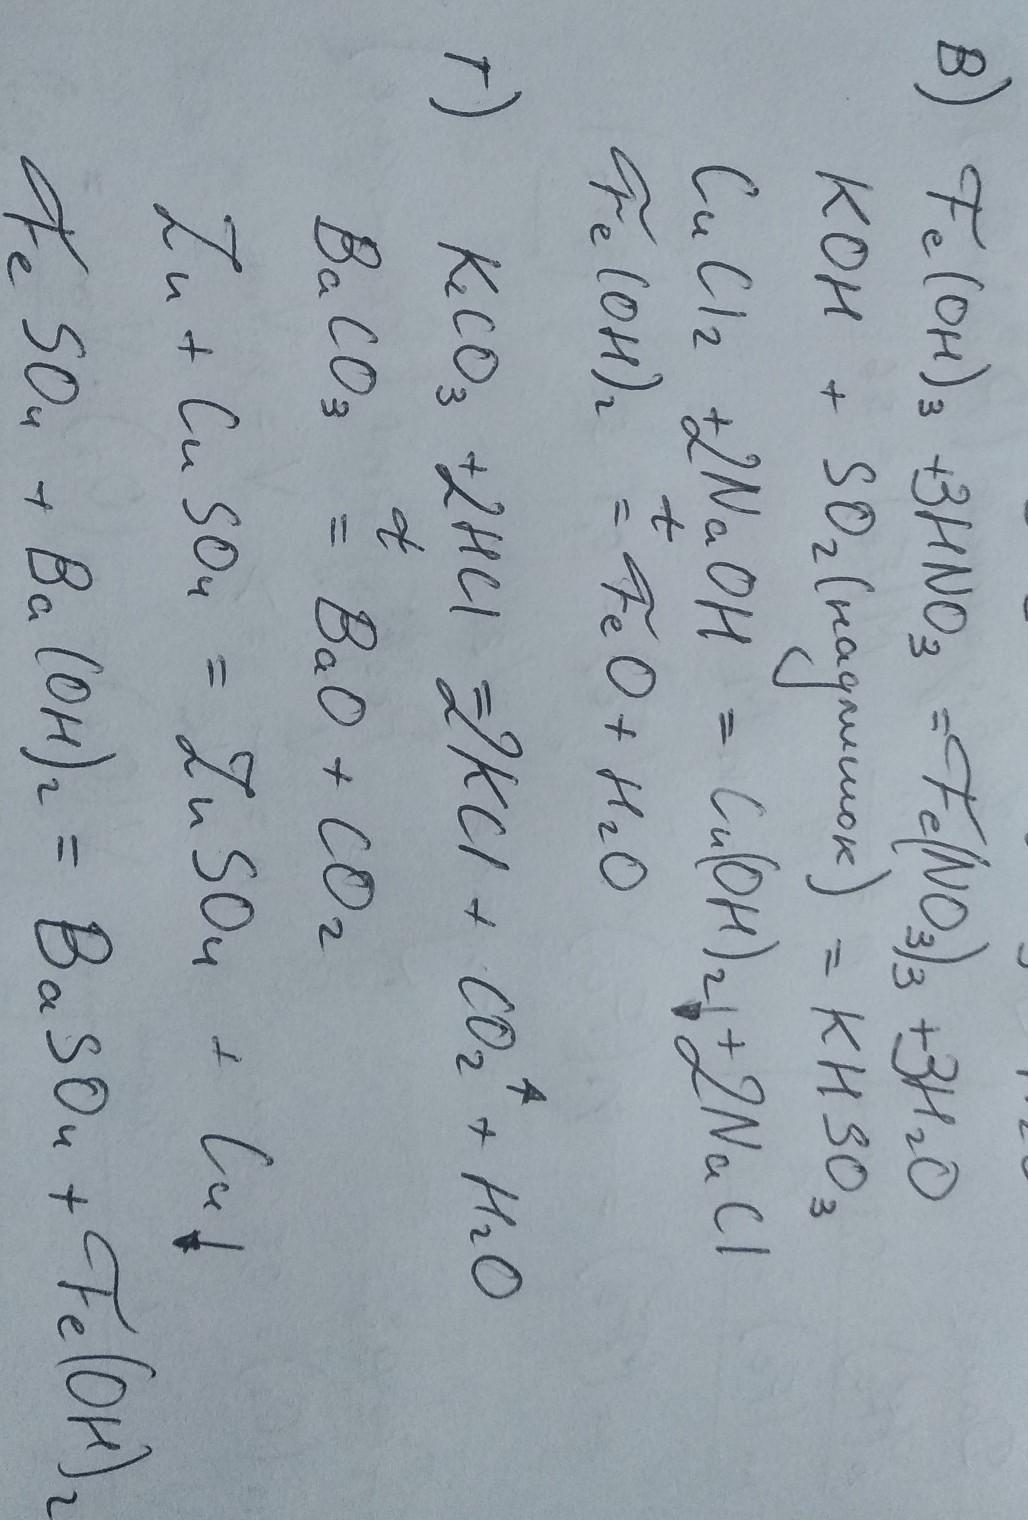 В) Fe(OH)₃ + 3HNO₃ = Fe(NO₃)₃ + 3H₂O
KOH + SO₂ (надлишок) = KHSO₃
CuCl₂ + 2NaOH = Cu(OH)₂↓ + 2NaCl
Fe(OH)₂ =ᵗ FeO + H₂O
Г) K₂CO₃ + 2HCl = 2KCl + CO₂↑ + H₂O
BaCO₃ =ᵗ BaO + CO₂
Zn + CuSO₄ = ZnSO₄ + Cu↓
FeSO₄ + Ba(OH)₂ = BaSO₄ + Fe(OH)₂